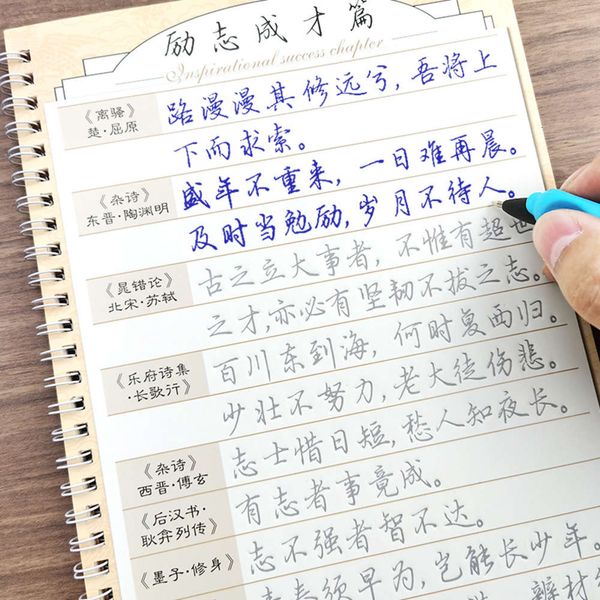 励志成才篇
Inspirational success chapter
《离骚》
楚·屈原
路漫漫其修远兮,吾将上
下而求索。
《杂诗》
东晋·陶渊明
盛年不重来,一日难再晨。
及时当勉励,岁月不待人。
《晁错论》
北宋·苏轼
古之立大事者,不惟有超世
之才,亦必有坚韧不拔之志。
《乐府诗集
·长歌行》
百川东到海,何时复西归。
少壮不努力,老大徒伤悲。
《杂诗》
西晋·傅玄
志士惜日短,愁人知夜长。
《后汉书·
耿弇列传》
有志者事竟成。
《墨子·修身》
志不强者智不达。
青春须早为,岂能长少年。
辨材